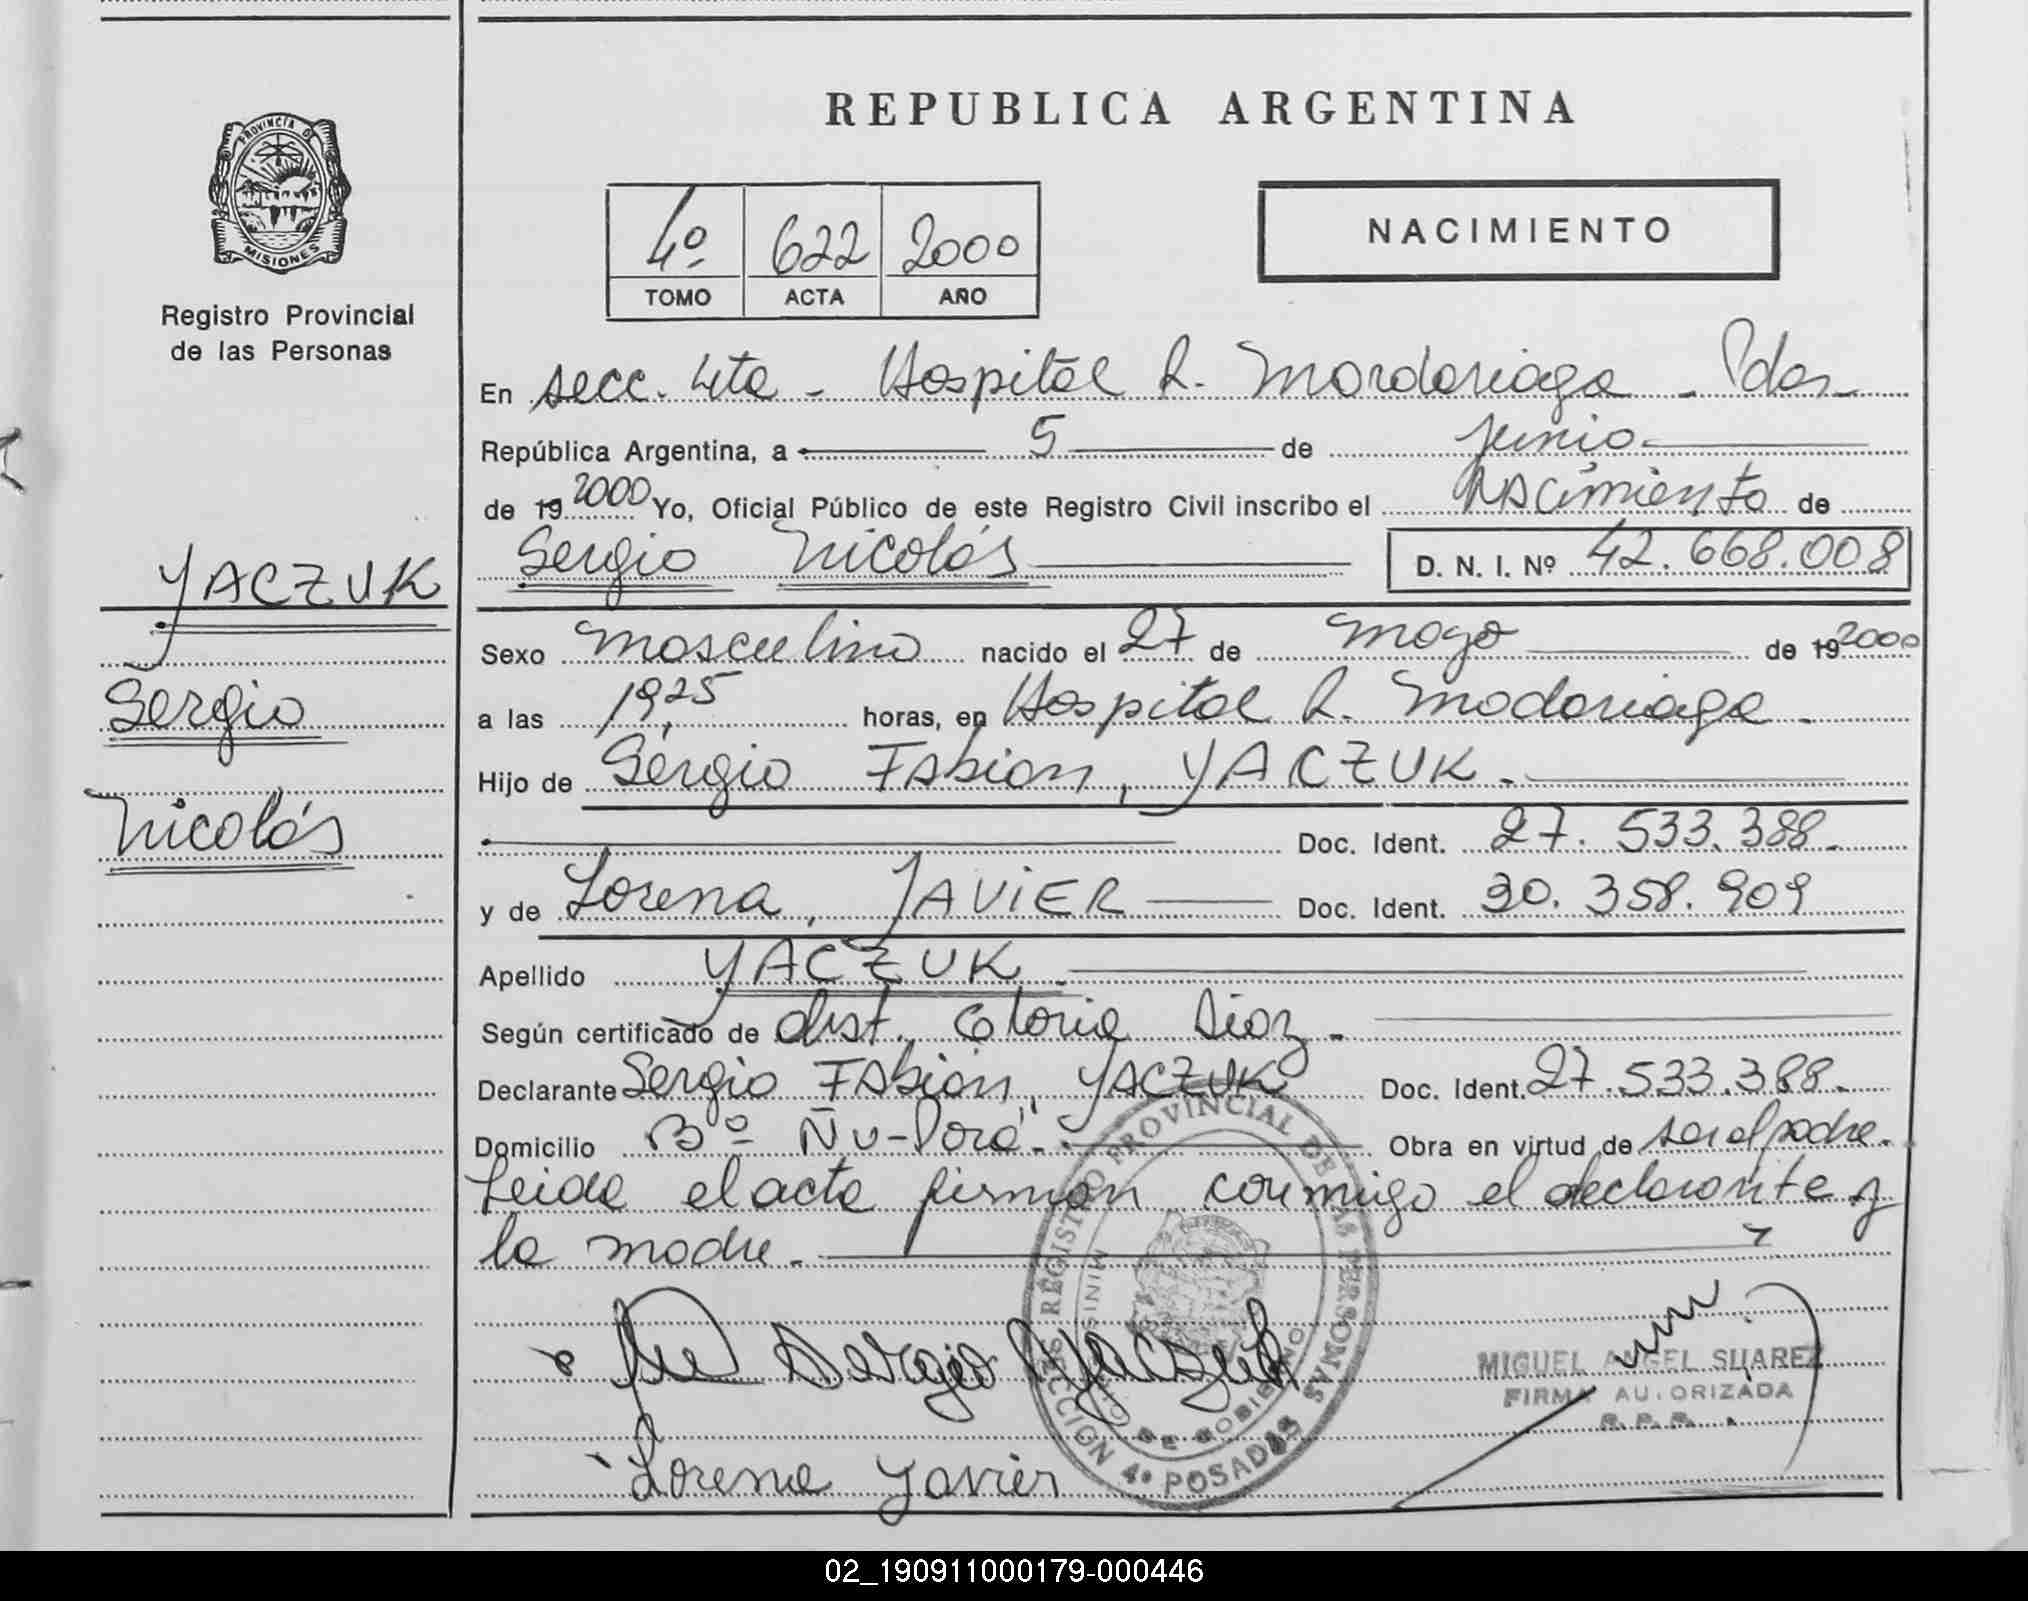 REPUBLICA ARGENTINA
PROVINCIA DE
MISIONES
Registro Provincial
de las Personas
4º 622 2000
TOMO ACTA AÑO
NACIMIENTO
En secc. 4ta - Hospital R. Mardariaga - Pdas
República Argentina, a 5 de junio
de 19 2000 Yo, Oficial Público de este Registro Civil inscribo el Nacimiento de
Sergio Nicolás D. N. I. Nº 42.668.008
YACZUK
Sergio
Nicolás
Sexo Masculino nacido el 27 de Mayo de 19 2000
a las 19,25 horas, en Hospital R. Madariaga.
Hijo de Sergio Fabian, YACZUK.
Doc. Ident. 27.533.388.
y de Lorena, JAVIER Doc. Ident. 30.358.909
Apellido YACZUK.
Según certificado de obst. Gloria Diaz.
Declarante Sergio Fabian, YACZUK Doc. Ident. 27.533.388.
Domicilio Bº Ñu-Porá. Obra en virtud de ser el padre.
Leida el acta firman conmigo el declarante y
la madre.
Sergio Yaczuk
Lorena Javier
REGISTRO PROVINCIAL DE LAS PERSONAS
MINISTERIO DE GOBIERNO
SECCION 4ª POSADAS
MIGUEL ANGEL SUAREZ
FIRMA AUTORIZADA
R.P.P.
02_190911000179-000446